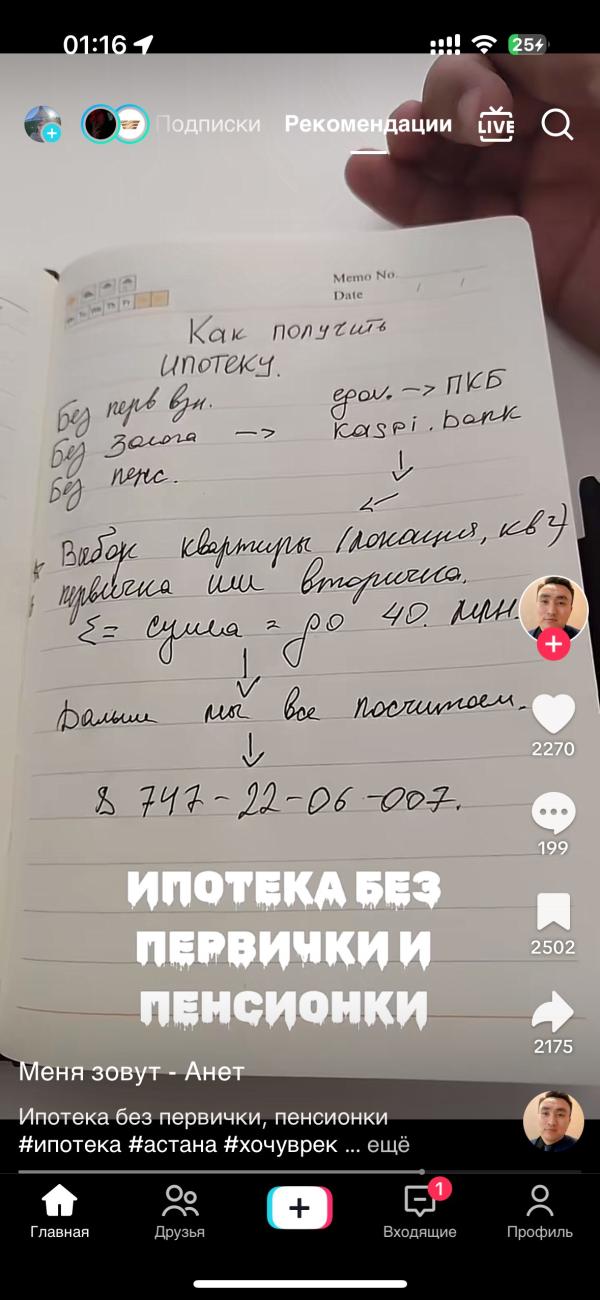 01:16
25
Подписки
Рекомендации
LIVE
Memo No.
Date / /
Как получить
ипотеку.
Без перв взн.
Без залога →
Без пенс.
egov. → ПКБ
kaspi. bank
↓
Выбор квартиры (локация, кв²)
первичка или вторичка.
Σ = сумма = до 40. млн.
↓
Дальше мы все посчитаем.
↓
8 747-22-06-007.
ИПОТЕКА БЕЗ
ПЕРВИЧКИ И
ПЕНСИОНКИ
2270
199
2502
2175
Меня зовут - Анет
Ипотека без первички, пенсионки
#ипотека #астана #хочуврек ... ещё
Главная
Друзья
1
Входящие
Профиль